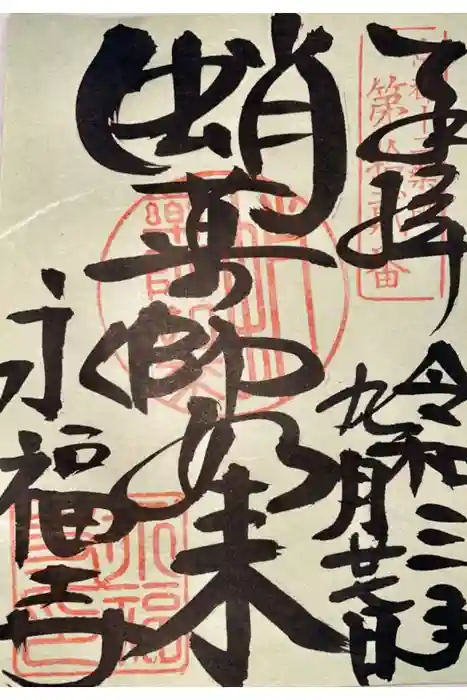 奉拝
第拾貳番
令和三年
九月廿七日
蛸薬師如来
永福寺